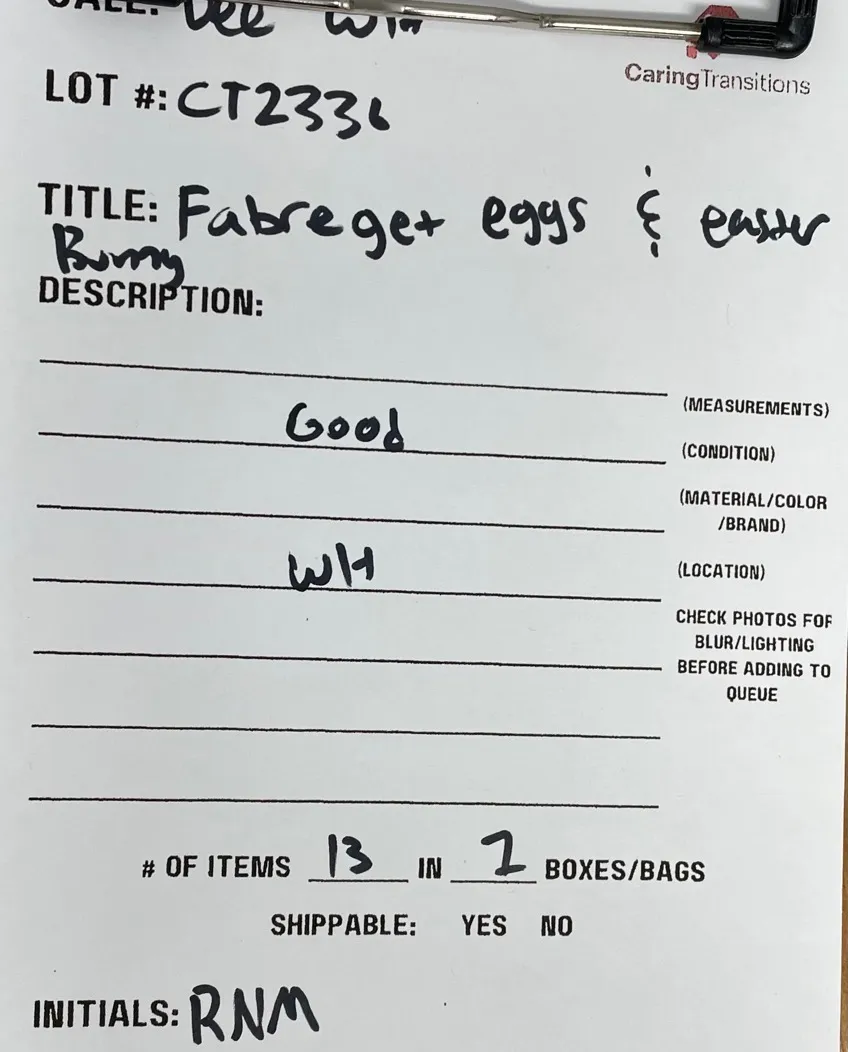 SALE: Dee WH
CaringTransitions
LOT #: CT2336
TITLE: Fabreget eggs & easter
Bunny
DESCRIPTION:
(MEASUREMENTS)
Good
(CONDITION)
(MATERIAL/COLOR
/BRAND)
WH
(LOCATION)
CHECK PHOTOS FOR
BLUR/LIGHTING
BEFORE ADDING TO
QUEUE
# OF ITEMS 13 IN 1 BOXES/BAGS
SHIPPABLE: YES NO
INITIALS: RNM